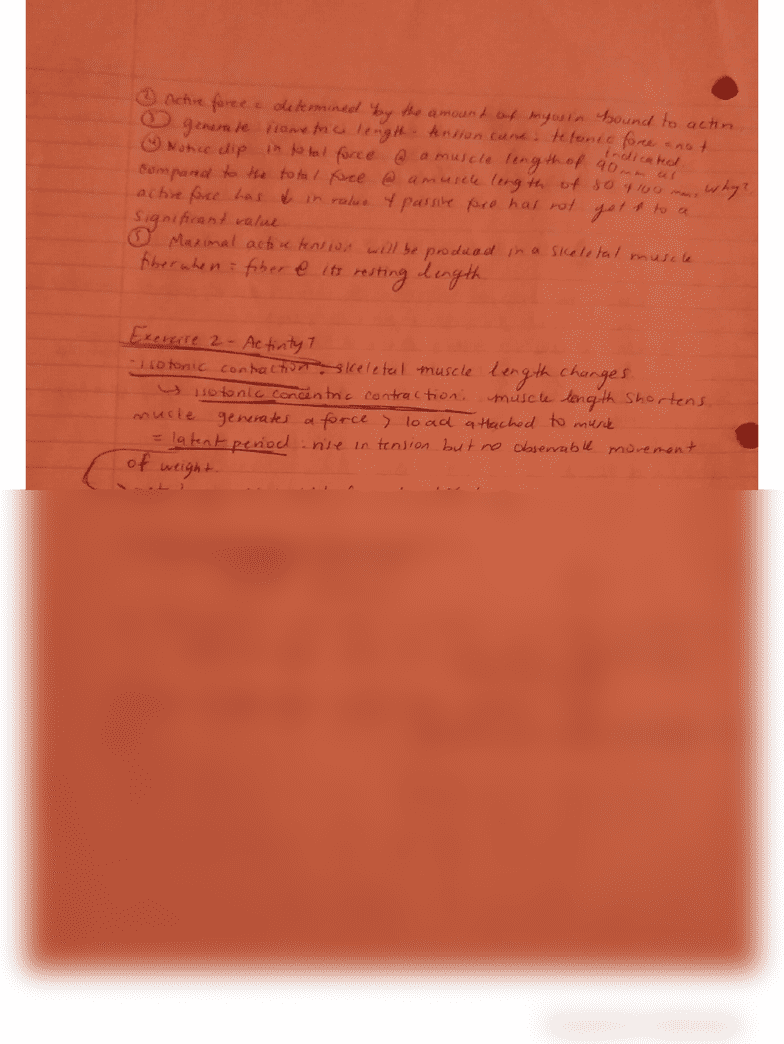 ② Active force = determined by the amount of myosin bound to actin
③ generate isometric length-tension curve: tetanic force = not indicated
④ Notice dip in total force @ a muscle length of 90 mm as
compared to the total force @ a muscle length of 80 + 100 mm. Why?
active force has ↓ in value + passive force has not yet ↑ to a
significant value.
⑤ Maximal active tension will be produced in a skeletal muscle
fiber when = fiber @ its resting length
Exercise 2 - Activity 7
- isotonic contraction: skeletal muscle length changes
↳ isotonic concentric contraction: muscle length shortens
muscle generates a force > load attached to muscle
= latent period: rise in tension but no observable movement
of weight.